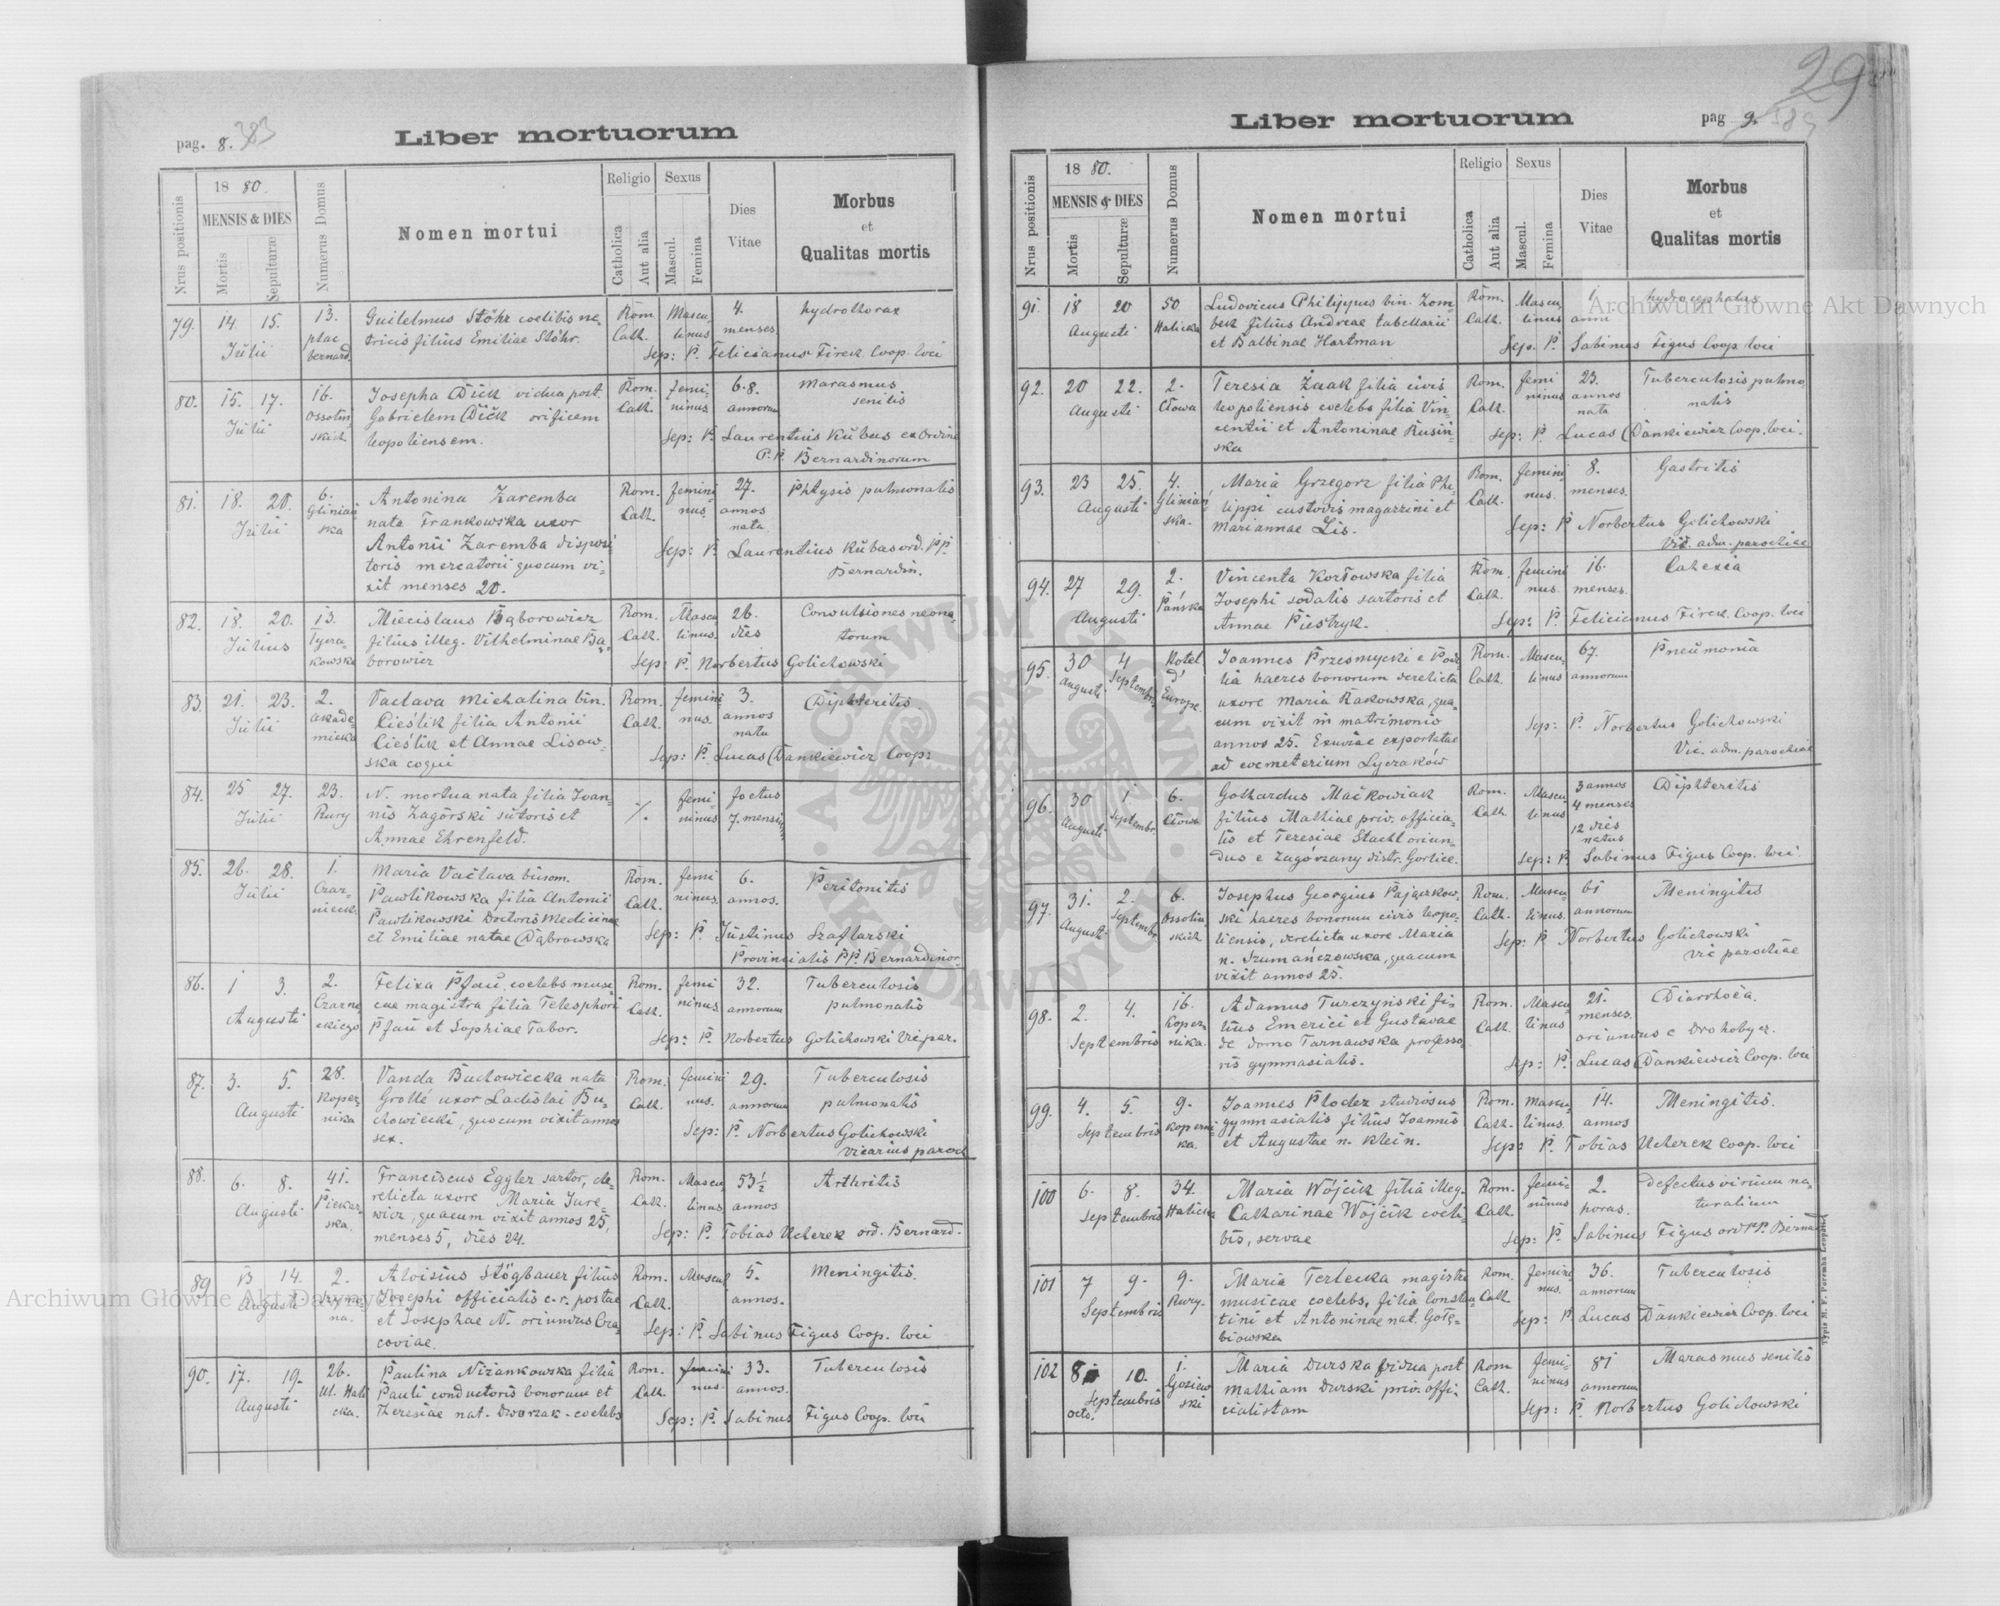 29
pag. 8. 383
Liber mortuorum
Nrus positionis
18 80.
MENSIS & DIES
Mortis
Sepulturæ
Numerus Domus
Nomen mortui
Religio
Catholica
Aut alia
Sexus
Mascul.
Femina
Dies
Vitae
Morbus
et
Qualitas mortis
79. 14. 15. Julii 13. plac bernard.
Guilelmus Stöhr coelibis ne-
tricis filius Emiliae Stöhr.
Rom. Cath. Mascu linus 4. menses hydrothorax
Sep: P. Felicianus Firek Coop. loci
80. 15. 17. Julii 16. Ossoliń skich
Josepha Dick vidua post.
Gabrielem Dick orificem
leopoliensem.
Rom. Cath. Femi ninus 68. annorum Marasmus senilis
Sep: P. Laurentius Kubas ex Ordine
P.P. Bernardinorum
81. 18. 20. Julii 6. Glinian ska
Antonina Zaremba
nata Frankowska uxor
Antonii Zaremba disposi
toris mercatorii quocum vi-
xit menses 20.
Rom. Cath. femini nus. 27. annos nata Phtysis pulmonalis
Sep: P. Laurentius Kubas ord. PP.
Bernardin.
82. 18. 20. Julius 13. Łycza kowska
Miecislaus Bąborowicz
filius illeg. Vilhelminae Bą-
borowicz
Rom. Cath. Mascu linus. 26. dies Convulsiones neona-
torum
Sep: P. Norbertus Golichowski
83. 21. 23. Julii 2. akade- micka
Vaclava Michalina bin.
Cieślik filia Antonii
Cieślik et Annae Lisow-
ska coqui
Rom. Cath. femini nus. 3. annos nata Diphteritis
Sep: P. Lucas Dankiewicz Coop:
84. 25 27. Julii 23. Rury
N. mortua nata filia Joan-
nis Zagórski sutoris et
Annae Ehrenfeld.
./. femi- ninus foetus 7. mensium
85. 26. 28. Julii 1. Czar- nieck.
Maria Vaclava binom.
Pawlikowska filia Antonii
Pawlikowski Doctoris Medicinae
et Emiliae natae Dąbrowska
Rom. Cath. femi ninus. 6. annos. Peritonitis
Sep: P. Justinus Szaflarski
Provincialis PP. Bernardinor.
86. 1 3. Augusti 2. Czarne- ckiego
Felixa Pfau, coelebs musi-
cae magistra filia Telesphori
Pfau et Sophiae Tabor.
Rom. Cath. femi ninus 32. annorum Tuberculosis
pulmonalis
Sep: P. Norbertus Golichowski Vic par.
87. 3. 5. Augusti 28. Koper- nika
Vanda Buchowiecka nata
Grollé uxor Ladislai Bu-
chowiecki, quocum vixit annos
sex.
Rom. Cath. femini nus. 29. annorum Tuberculosis
pulmonalis
Sep: P. Norbertus Golichowski
vicarius paroch
88. 6. 8. Augusti 41. Piekar- ska.
Franciscus Eggler sartor, de-
relicta uxore Maria Jure-
wicz, quacum vixit annos 25,
menses 5, dies 24.
Rom. Cath. Mascu linus 53½ annos Arthritis
Sep: P. Tobias Ucherek ord. Bernard.
89 13 14. Augusti 2.
Aloisius Stögbauer filius
Josephi officialis c.r. postae
et Josephae N. oriundus Cra-
coviae.
Rom. Cath. Mascul 5. annos. Meningitis.
Sep: P. Sabinus Figus Coop. loci
90. 17. 19. Augusti 26. Ul. Hali cka.
Paulina Niżankowska filia
Pauli conductoris bonorum et
Theresiae nat. Dworzak - coelebs
Rom. Cath. femini nus. 33. annos. Tuberculosis
Sep: P. Sabinus Figus Coop. loci
Liber mortuorum
pag 9.
Nrus positionis
18 80.
MENSIS & DIES
Mortis
Sepulturæ
Numerus Domus
Nomen mortui
Religio
Catholica
Aut alia
Sexus
Mascul.
Femina
Dies
Vitae
Morbus
et
Qualitas mortis
91. 18 20 Augusti 50 Halicka
Ludovicus Philippus bin. Zom-
bek filius Andreae tabellarii
et Balbinae Hartman
Rom. Cath. Mascu- linus 1. anni hydrocephalus
Sep. P. Sabinus Figus Coop loci
92. 20 22. Augusti 2. Cłowa
Teresia Żaak filia civis
leopoliensis coelebs filia Vin-
centii et Antoninae Rusiń-
ska
Rom. Cath. femi ninus 23. annos nata Tuberculosis pulmo-
nalis
Sep: P. Lucas Dankiewicz Coop. loci.
93. 23 25. Augusti 4. Gliniań ska.
Maria Grzegorz filia Phi-
lippi custodis magazzini et
Mariannae Lis.
Rom. Cath. femini nus. 8. menses. Gastritis
Sep: P Norbertus Golichowski
Vic. adm. parochiae
94. 27 29. Augusti 2. Pańska
Vincenta Kozłowska filia
Josephi sodalis sartoris et
Annae Piestryk.
Rom. Cath. femini nus. 16. menses. Cahexia
Sep: P. Felicianus Firek Coop. loci
95. 30 Augusti 4 Septembris Hotel d' Europe.
Joannes Przesmycki e Podo-
lia haeres bonorum derelicta
uxore Maria Rakowska, qua-
cum vixit in matrimonio
annos 25. Exuviae exportatae
ad coemeterium Lyczaków
Rom. Cath. Mascu- linus 67. annorum Pneumonia
Sep: P. Norbertus Golichowski
Vic. adm. parochiae
96. 30 Augusti 1 Septembr. 6. Cłowa
Gothardus Maćkowiak
filius Mathiae priv. officia-
lis et Teresiae Stachl oriun-
dus e Zagórzany distr. Gorlice.
Rom. Cath. Mascu linus 3 annos 4 menses 12 dies natus Diphteritis
Sep: P Sabinus Figus Coop. loci
97. 31. Augusti 2. Septembr. 6. Ossoliń skich
Josephus Georgius Pajączkow-
ski haeres bonorum civis leopo-
liensis, derelicta uxore Maria
n. Szumańczowska, quacum
vixit annos 25.
Rom. Cath. Mascu- linus. 61 annorum Meningitis
Sep: P Norbertus Golichowski
vic parochiae
98. 2. 4. Septembris 16. Koper- nika.
Adamus Turczyński fi-
lius Emerici et Gustavae
de domo Tarnawska professo-
ris gymnasialis.
Rom. Cath. Mascu linus 21. menses. Diarrhoea.
oriundus e Drohobycz.
Sep: P. Lucas Dankiewicz Coop. loci
99. 4. 5. Septembris 9. Koperni- ka.
Joannes Plodez studiosus
gymnasialis filius Joannis
et Augustae n. Klein.
Rom. Cath. Mascu- linus. 14. annos Meningitis.
Sep: P. Tobias Ucherek Coop. loci
100 6. 8. Septembris 34. Halicka
Maria Wójcik filia illeg.
Catharinae Wójcik coeli-
bis, servae
Rom. Cath. femi- ninus 2. horas. Defectus virium na-
turalium
Sep: P. Sabinus Figus ord PP. Bernad
101 7 9. Septembris 9. Rury.
Maria Terlecka magistra
musicae coelebs, filia Constan-
tini et Antoninae nat. Gołę-
biowska
Rom. Cath. femini nus. 36. annorum Tuberculosis
Sep: P. Lucas Dankiewicz Coop. loci
102 8 octo. 10. Septembris 1. Gosiew ski
Maria Durska vidua post
Mathiam Durski priv. offi-
cialistam
Rom Cath. femi- ninus 81 annorum Marasmus senilis
Sep: P. Norbertus Golichowski
Archiwum Główne Akt Dawnych
Archiwum Główne Akt Dawnych
ARCHIWUM GŁÓWNE AKT DAWNYCH